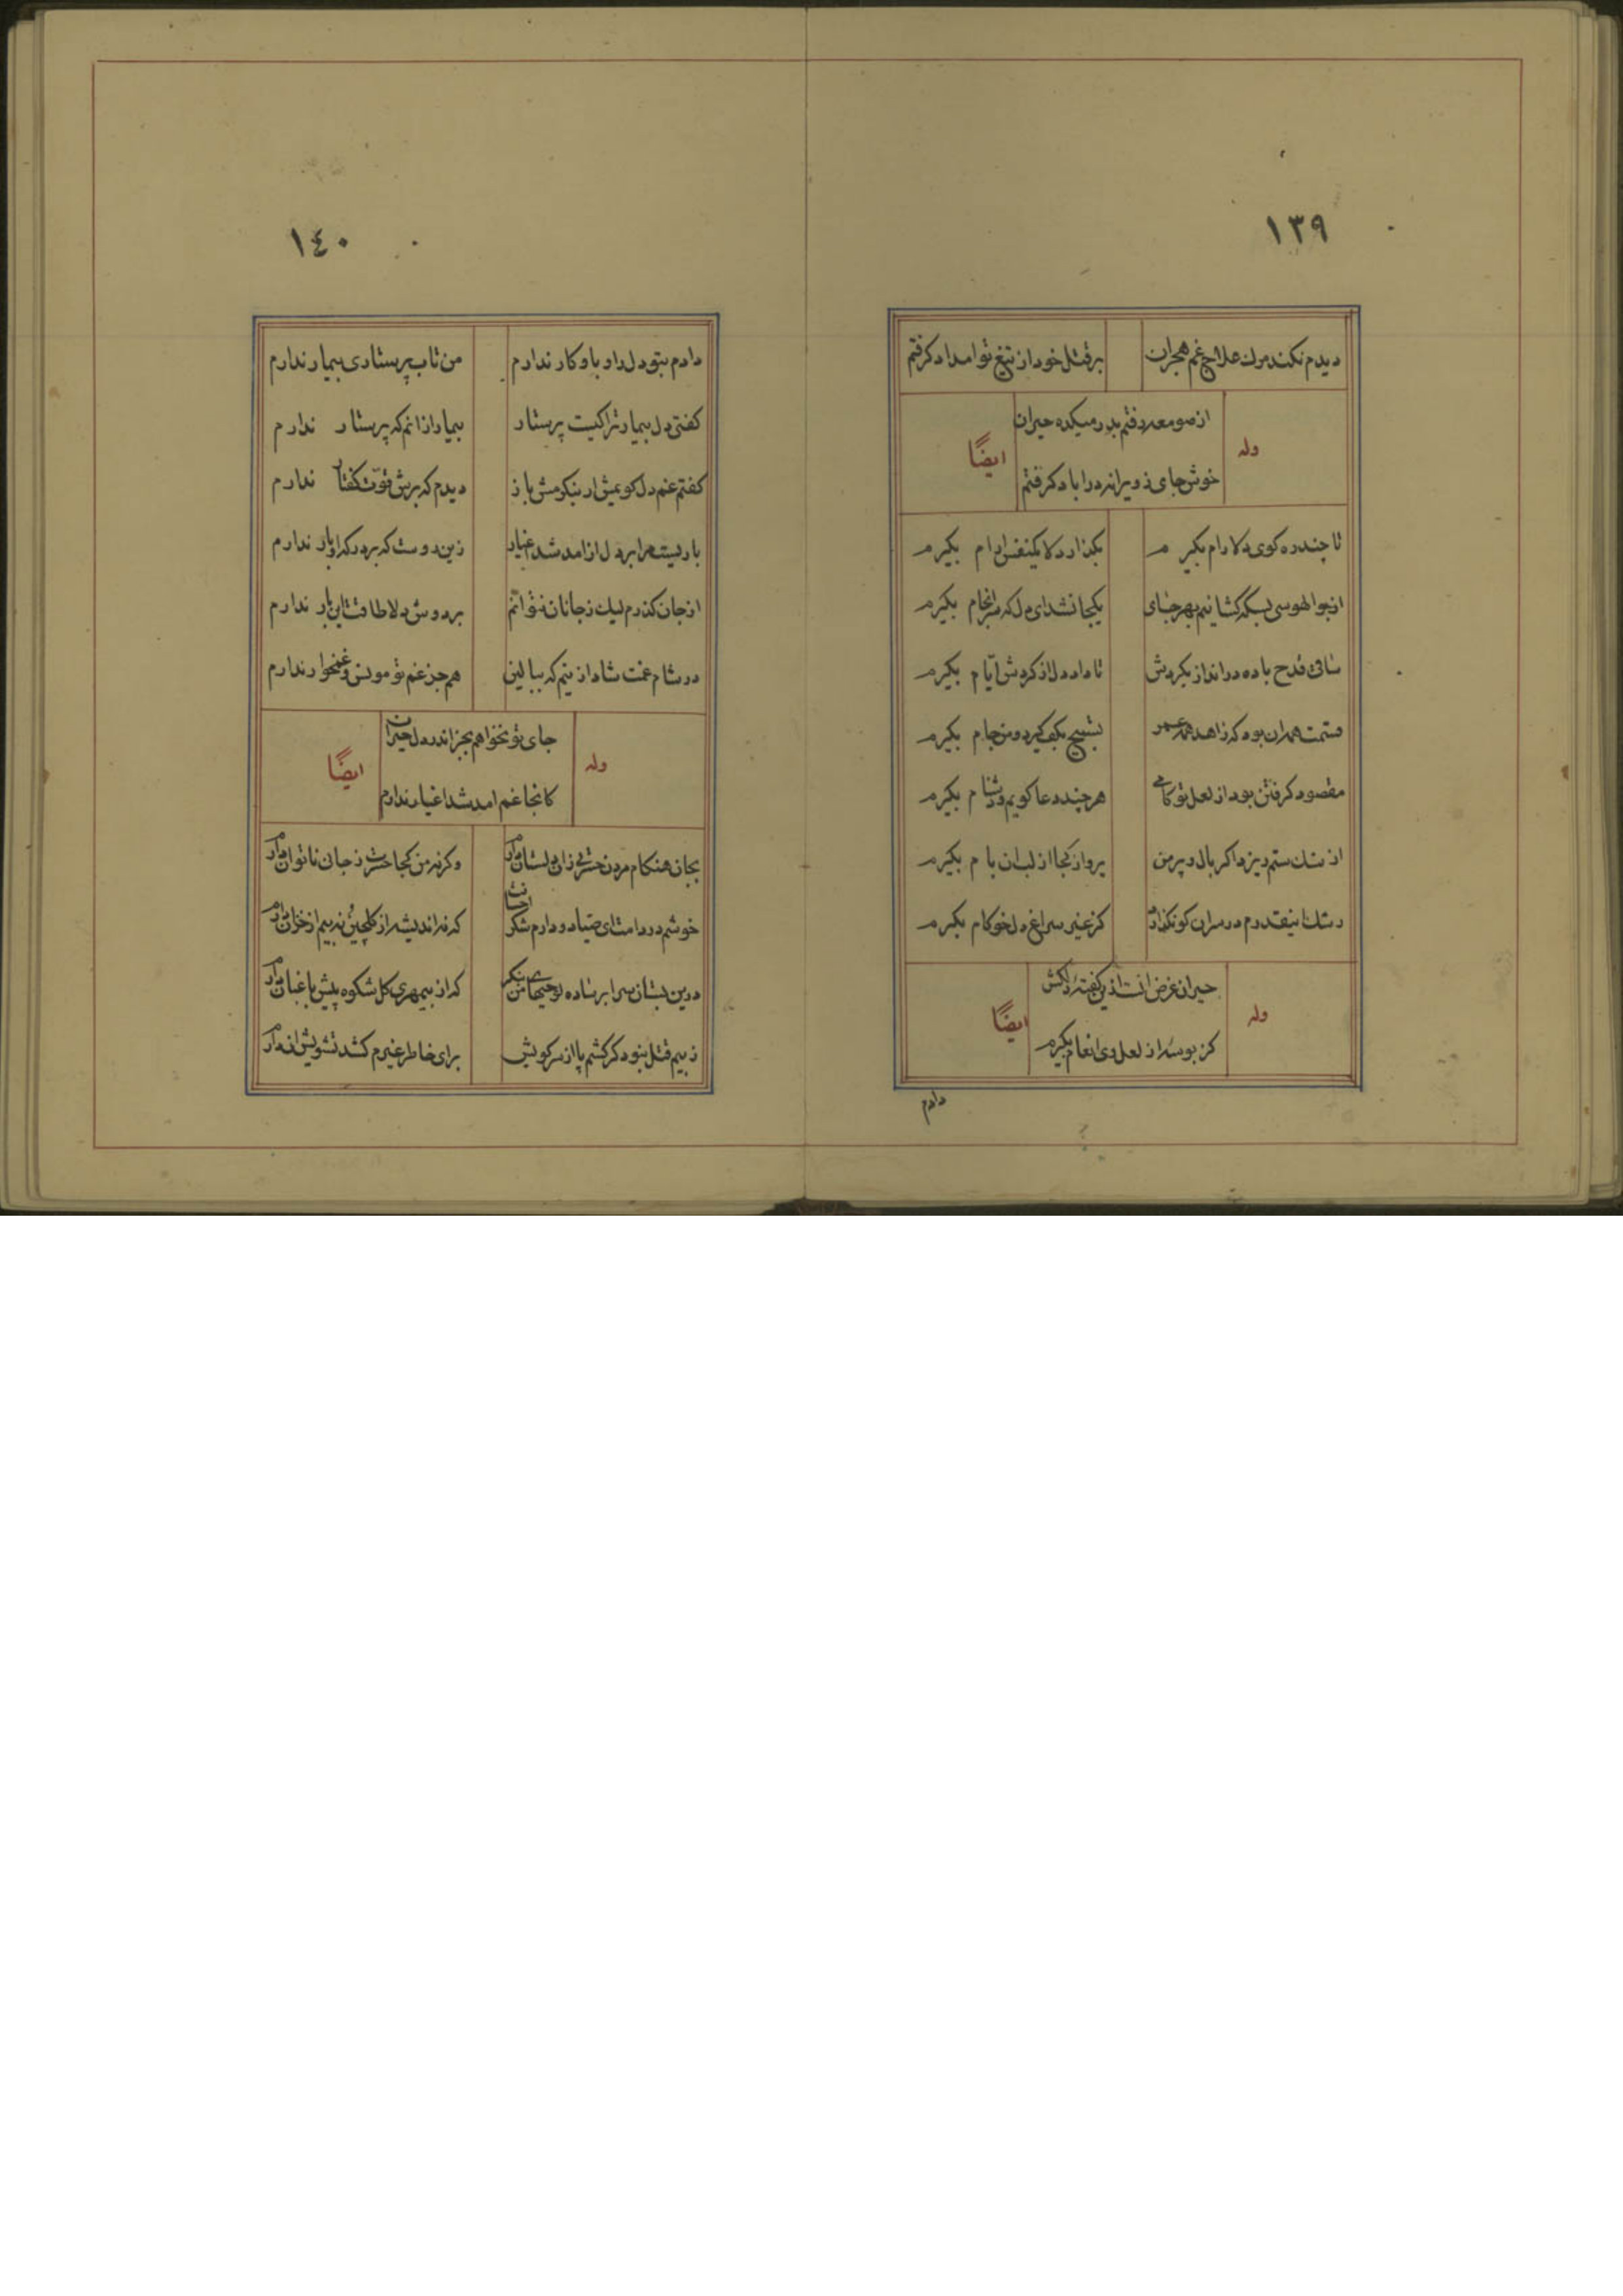 ١٣٩
دیدم نکند مرك علاج غم هجران برقتل خود از تیغ تو امداد کرفتم
از صومعه رفتم بدر میکده حیران
وله ایضًا
خوش جای ز ویرانه در اباد کرفتم
تا چند ره کوی دلارام بکیرم بکذار دلا یکنفس ارام بکیرم
از بوالهوسی بسکه کشانیم بهر جای یکجا نشد ای دل که سرانجام بکیرم
ساقی قدح باده در انداز بکردش تا داد دل از کردش ایّام بکیرم
قسمت همه ان بود که زاهد همه عمر تسبیح بکف کیرد و من جام بکیرم
مقصود کرفتن بود از لعل تو کامی هر چند دعا کویم و دشنام بکیرم
از سنك ستم ریزد اکر بال و پر من پرواز کجا از لب ان بام بکیرم
رشك اینقدرم در سر ان کو نکذارد کز غیر سراغ دل خودکام بکیرم
حیران غرض انست ازین کفته دلکش
وله ایضًا
کز بوسه از لعل وی انعام بکیرم
دادم
١٤٠
دادم بتو دل را و باو کار ندارم من تاب پرستاری بیمار ندارم
کفتی دل بیمار ترا کیست پرستار بیمار از انم که پرستار ندارم
کفتم غم دل کویمش ار بنکرمش باز دیدم که برش قوّت کفتار ندارم
باریست مرا بر دل از امد شد اغیار زین دوست که بر درکه او بار ندارم
از جان کذرم لیك ز جانان نتوانم بر دوش دلا طاقت این بار ندارم
در شام غمت شاد ازینم که ببالین هم جز غم تو مونس و غمخوار ندارم
جای تو نخواهم بجز اندر دل حیران
وله ایضًا
کانجا غم امد شد اغیار ندارم
بجان هنکام مردن حسرتی زان دلستان دارم وکرنه من کجا حسرت ز جان ناتوان دارم
خوشم در دامت ای صیاد و دارم شکر احسانت که نه اندیشه از کلچین نه بیم از خزان دارم
درین بستان سرا بر ساده لوحیهای من بنکر که از بیمهری کل شکوه پیش باغبان دارم
ز بیم قتل نبود کر کشم پا از سر کویش برای خاطر غیرم کشد تشویش انه دارم